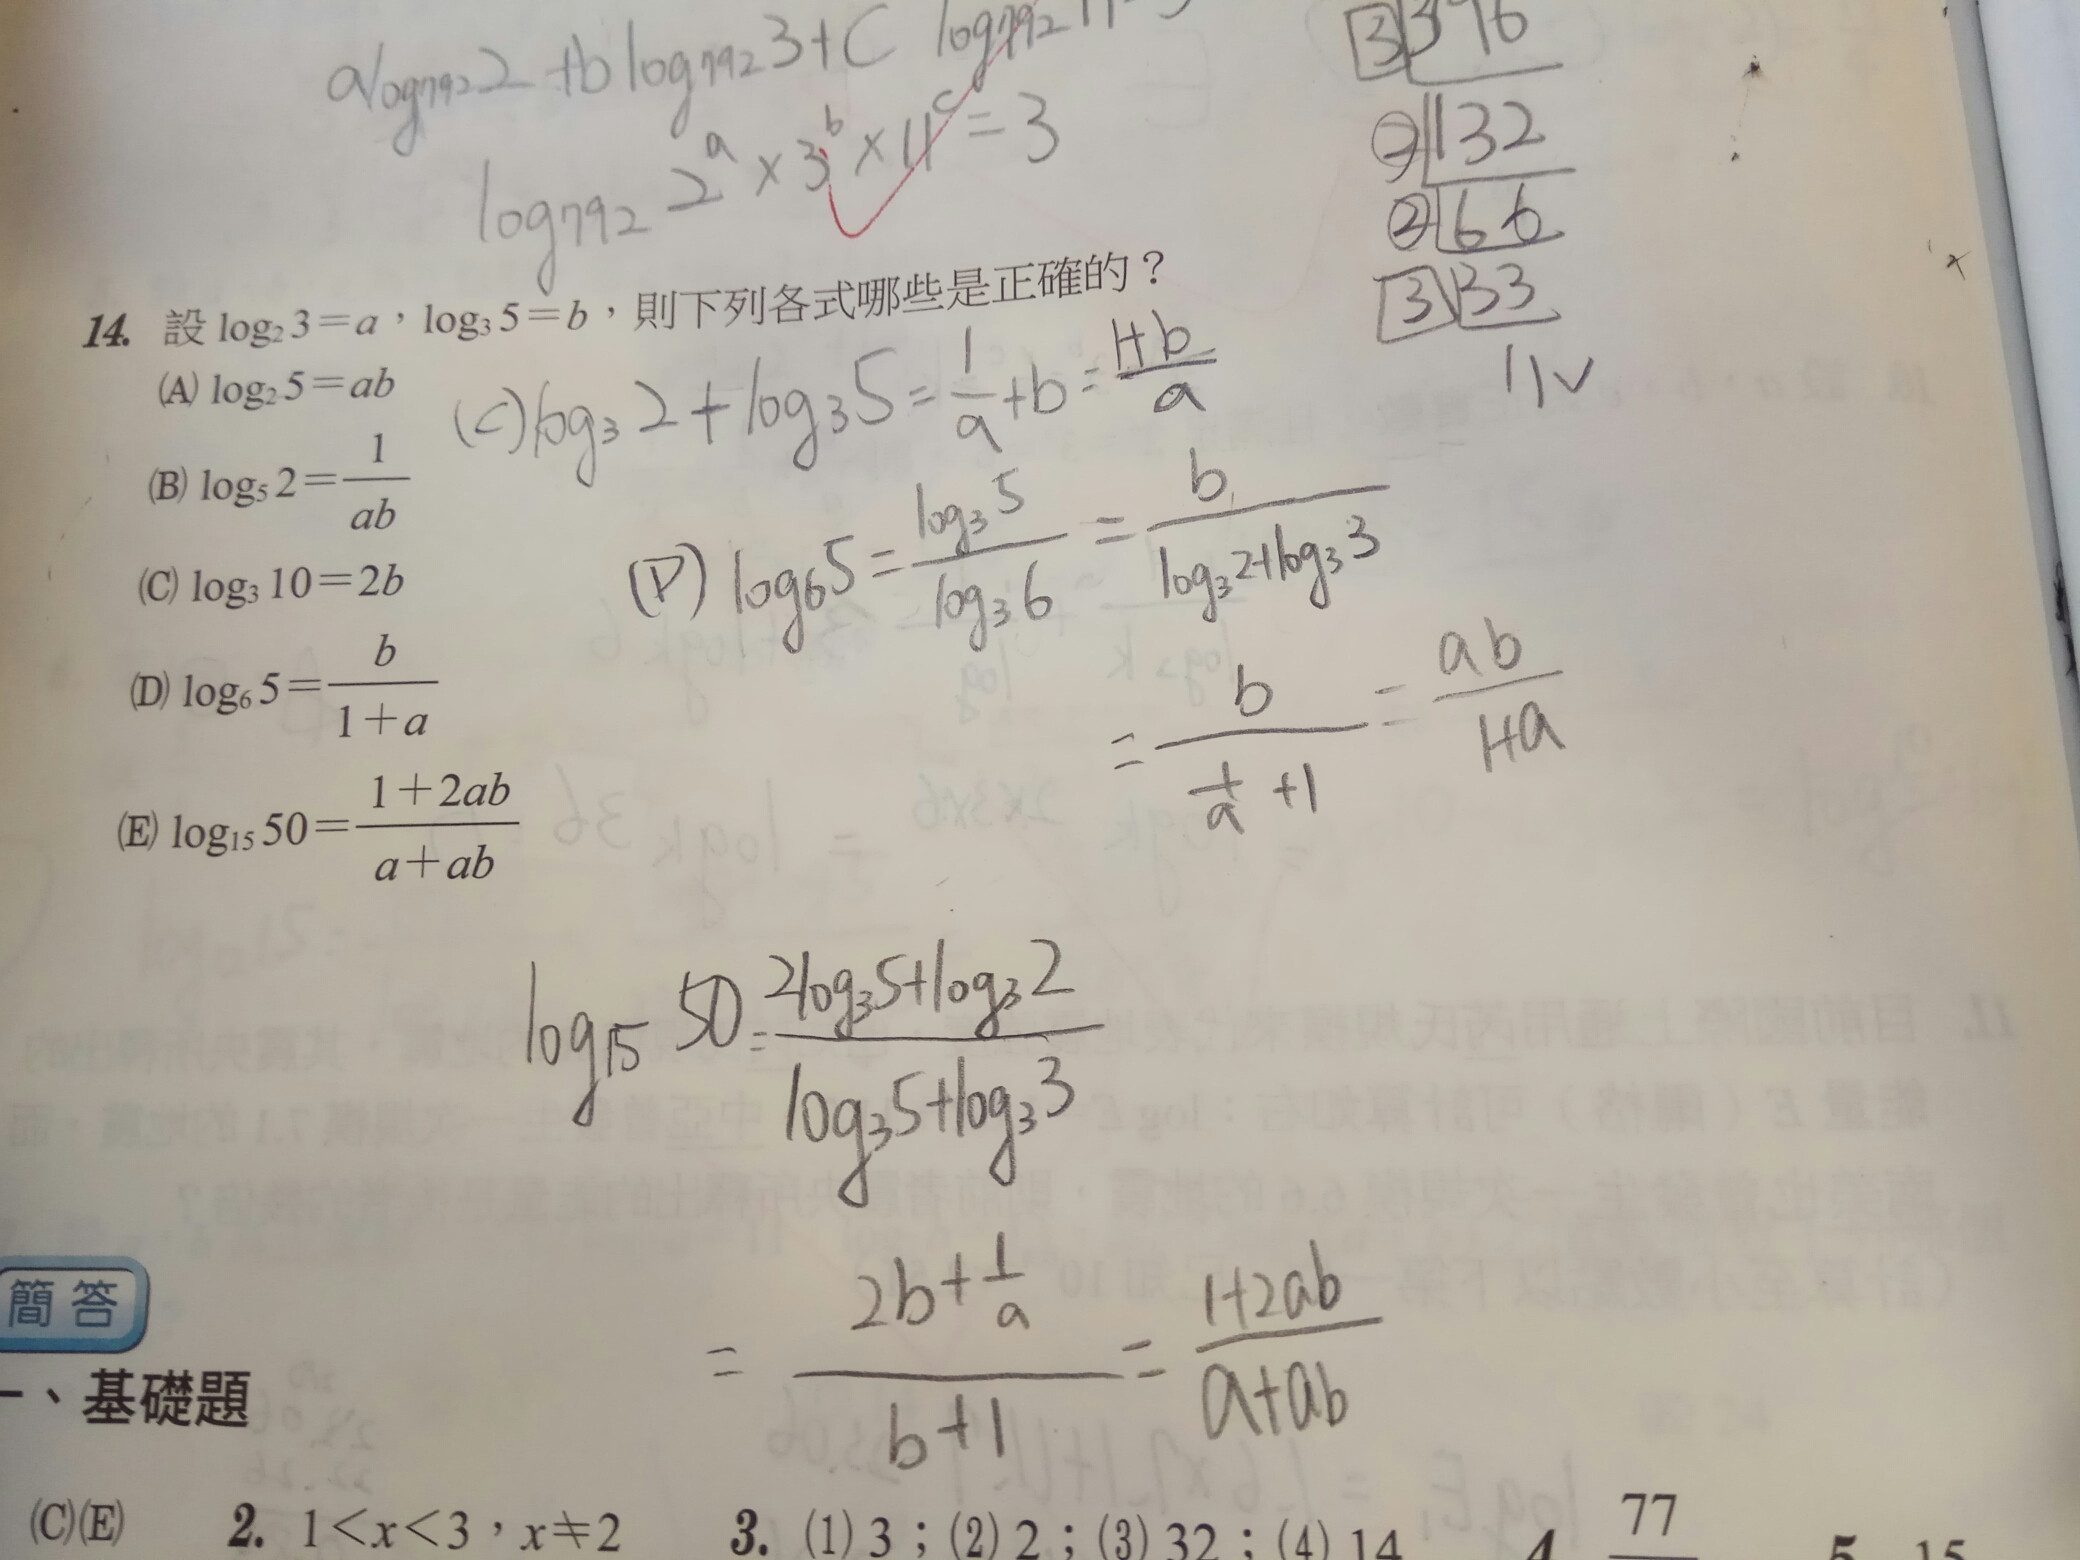 alog₇₉₂2+blog₇₉₂3+c log₇₉₂
log₇₉₂ 2ᵃ×3ᵇ×11ᶜ=3
3 396
2 132
2 66
3 33
11
14. 設 log₂3=a，log₃5=b，則下列各式哪些是正確的？
(A) log₂5=ab
(B) log₅2=1/ab
(C) log₃10=2b
(D) log₆5=b/(1+a)
(E) log₁₅50=(1+2ab)/(a+ab)
(C) log₃2+log₃5=1/a+b=(1+b)/a
(D) log₆5=log₃5/log₃6=b/(log₃2+log₃3)
=b/(1/a+1)=ab/(1+a)
log₁₅50=(2log₃5+log₃2)/(log₃5+log₃3)
=(2b+1/a)/(b+1)=(1+2ab)/(a+ab)
簡答
一、基礎題
(C)(E) 2. 1<x<3，x≠2 3. (1) 3；(2) 2；(3) 32；(4) 14 4. 77 5. 15